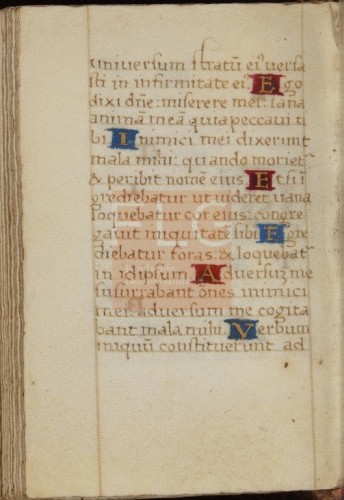 universum stratū ei⁹ versa
sti in infirmitate ei⁹ Ego
dixi dn̄e: miserere mei: sana
animā meā quia peccavi ti
bi Inimici mei dixerunt
mala mihi: quando moriet᷑
& peribit nomē eius Et si ī
grediebatur ut videret vana
loquebatur cor eius: congre
gavit iniquitatē sibi Egre
diebatur foras: & loquebat᷑
in idipsum Adversuʒ me
susurrabant oēs inimici
mei: adversum me cogita
bant mala mihi Verbum
iniquū constituerunt ad